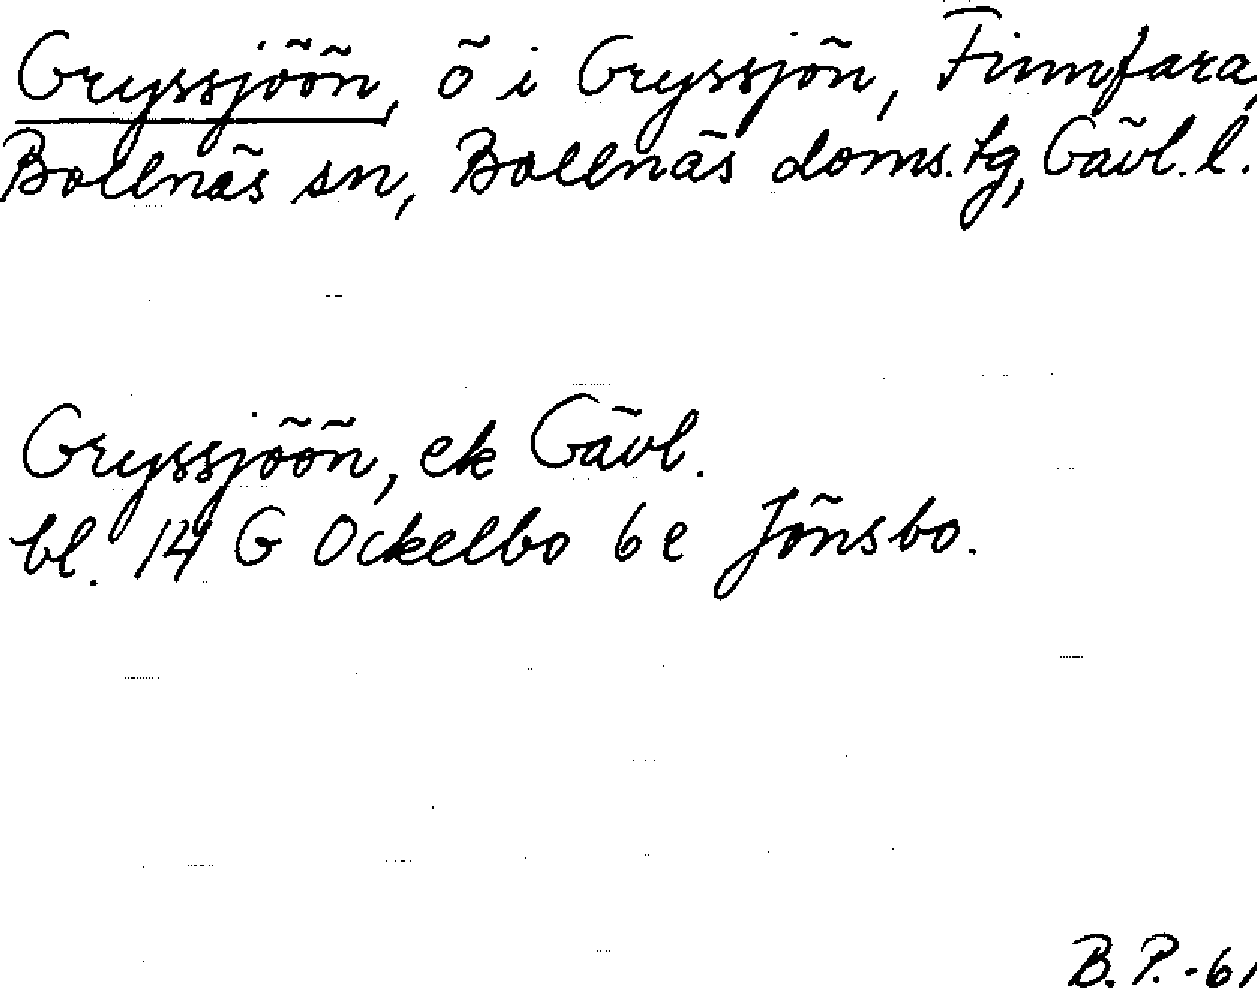 Gryssjöön, ö i Gryssjön, Finnfara,
Bollnäs sn, Bollnäs doms.tg, Gävl. l.
Gryssjöön, ek Gävl.
bl. 14 G Ockelbo 6 e Jönsbo.
B.P.-61